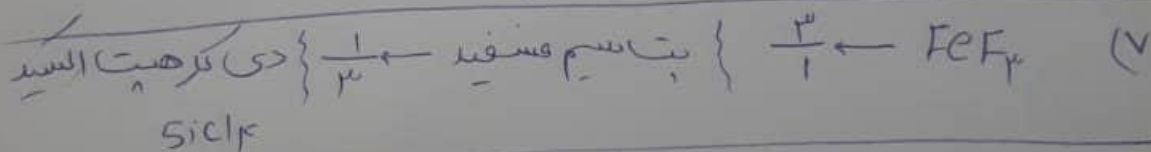 ۷) FeF۳ ← ۳/۱ { پتاسیم فسفید ← ۱/۳ { دی کرهیت اکسید
SiCl۴